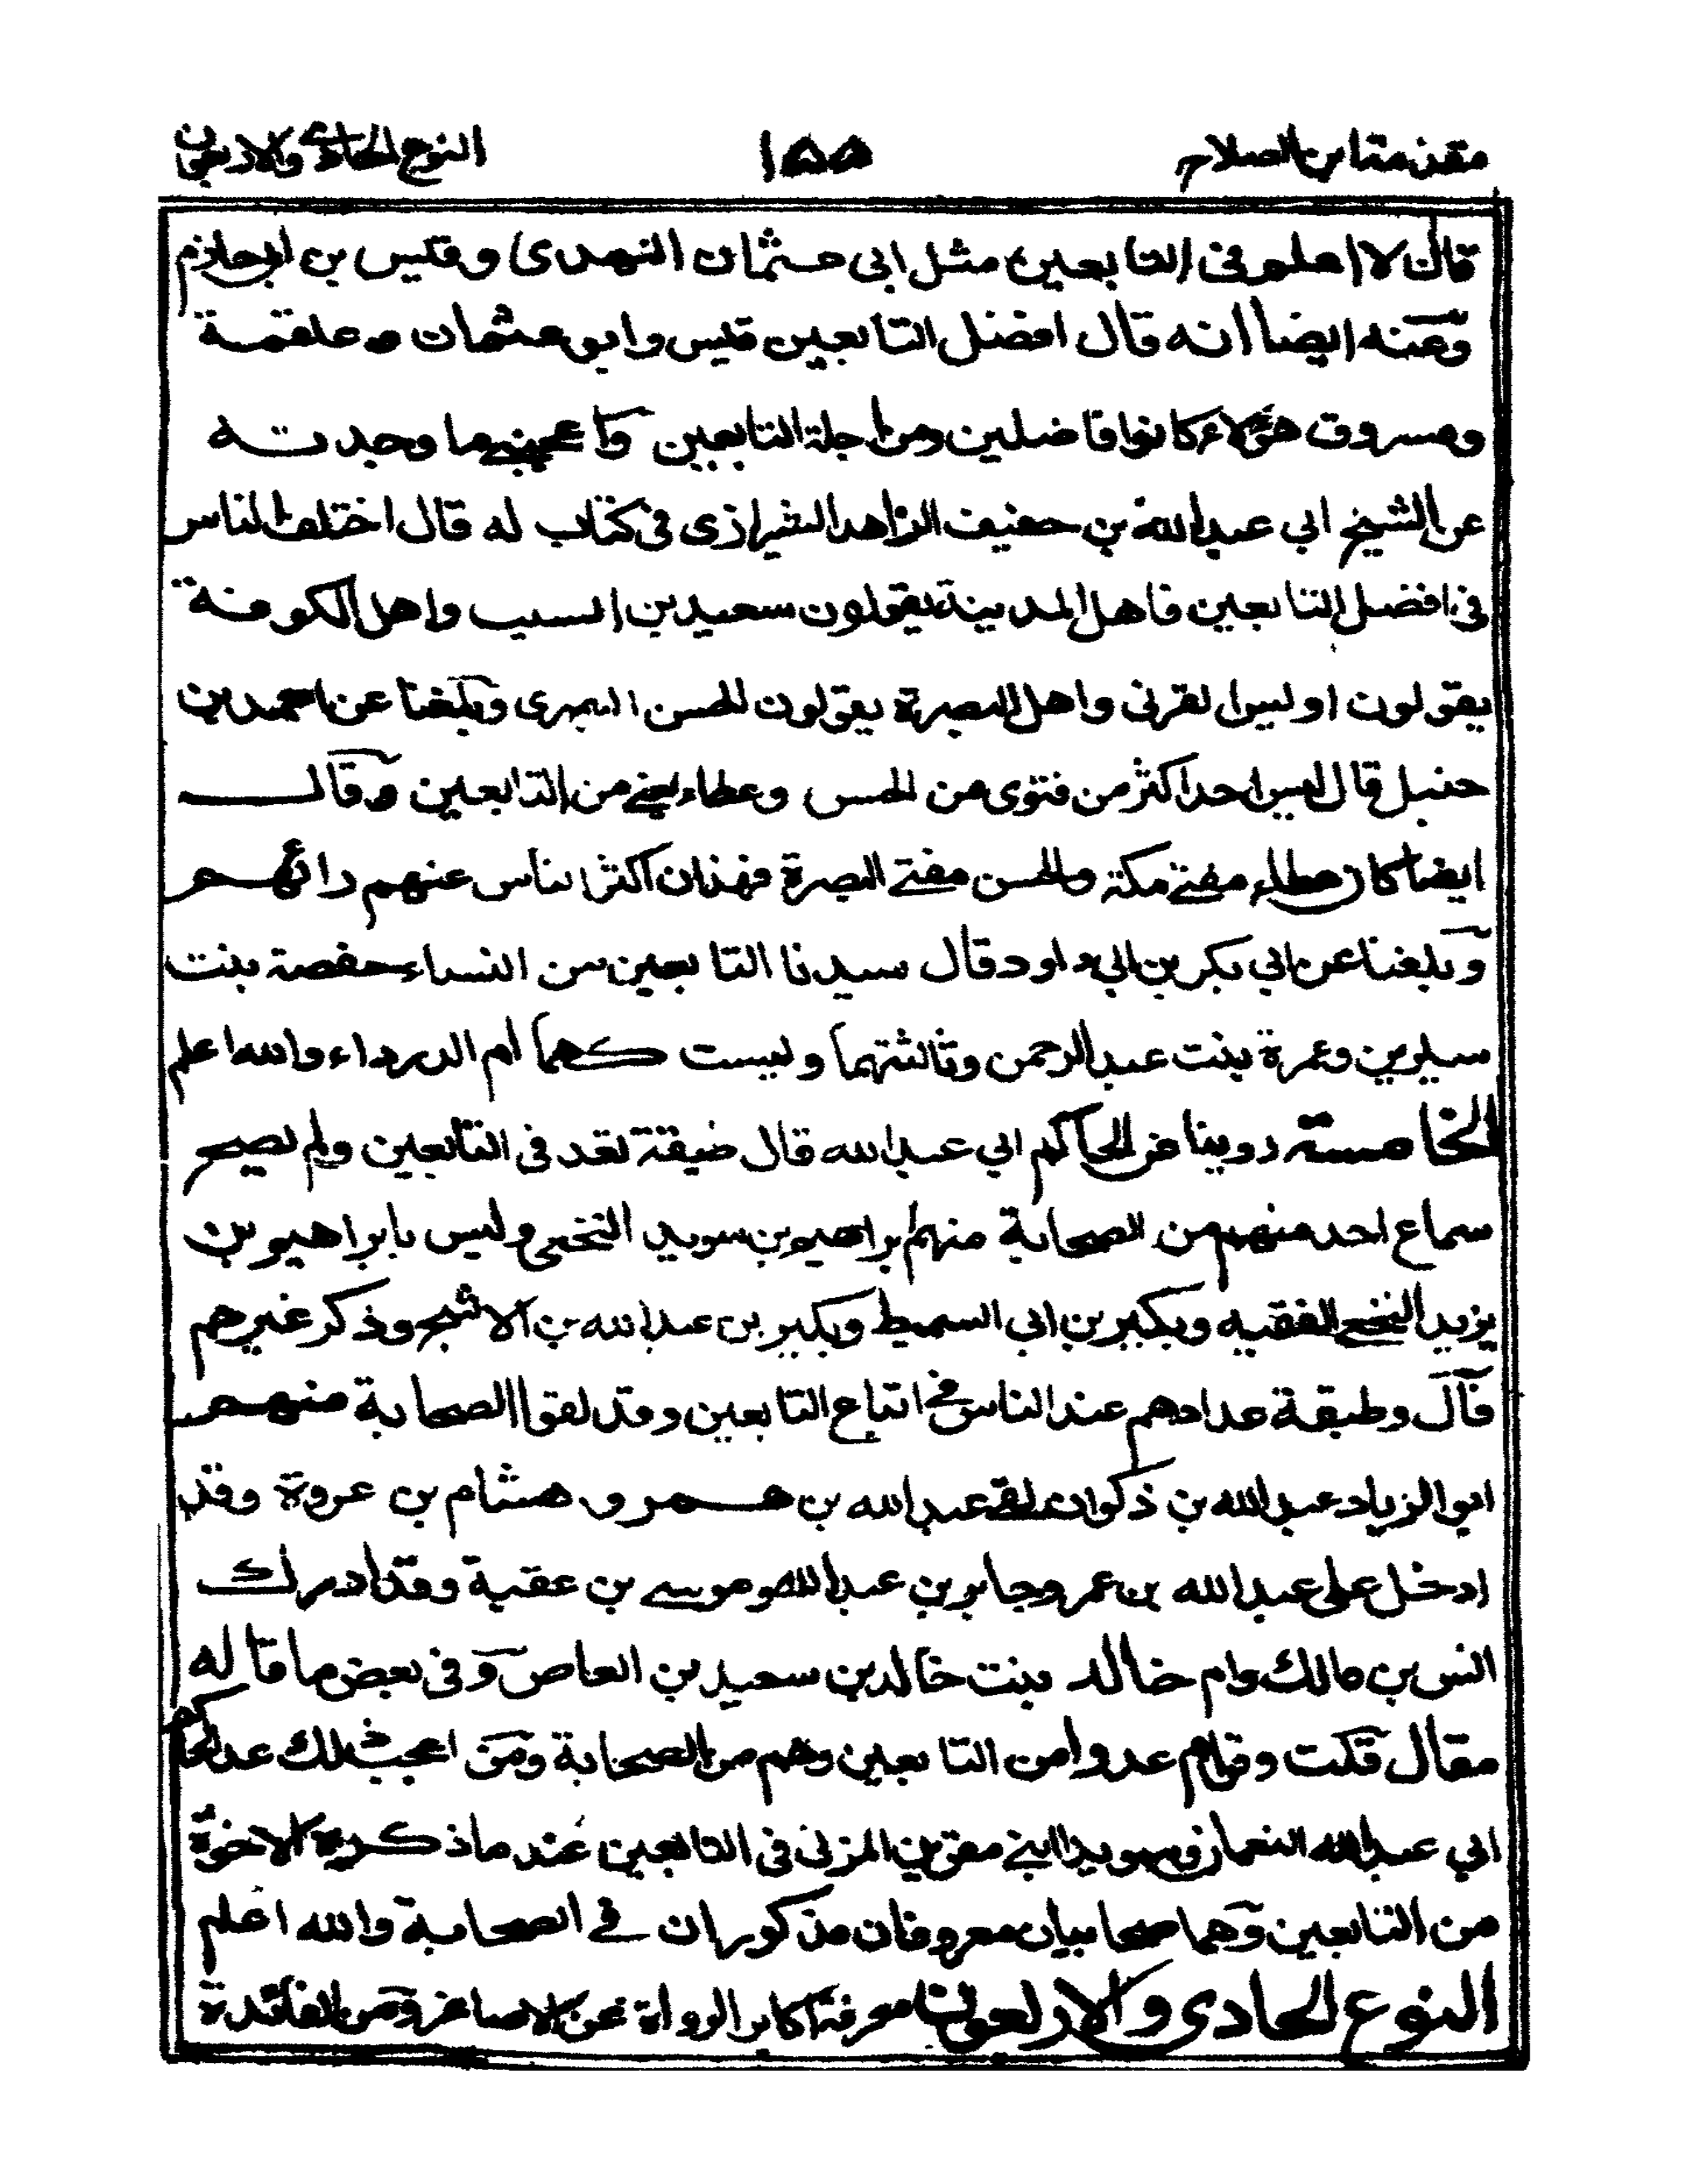 مقدمة ابن الصلاح ١٥٥ النوع الحادي والاربعون
قال لا اعلم في التابعين مثل ابي عثمان النهدى وقيس بن ابي حازم
وعنه ايضا انه قال افضل التابعين قيس وابو عثمان وعلقمة
ومسروق هؤلاء كانوا فاضلين ومن اجلة التابعين واعجبني ما وجدته
عن الشيخ ابي عبد الله بن خفيف الزاهد الشيرازى في كتاب له قال اختلف الناس
في افضل التابعين فاهل المدينة يقولون سعيد بن المسيب واهل الكوفة
يقولون اويس القرني واهل البصرة يقولون الحسن البصرى وبلغنا عن احمد بن
حنبل قال ليس احد اكثر من فتوى من الحسن وعطاء يعني من التابعين وقال
ايضا كان عطاء مفتي مكة والحسن مفتي البصرة فهذان اكثر الناس عنهم رائهم
وبلغنا عن ابي بكر بن ابي داود قال سيدنا التابعين من النساء حفصة بنت
سيرين وعمرة بنت عبد الرحمن وثالثتهما وليست كهما ام الدرداء والله اعلم
الخامسة روينا عن الحاكم ابي عبد الله قال طبقة تعد في التابعين ولم يصح
سماع احد منهم من الصحابة منهم ابراهيم بن سويد النخعي وليس بابراهيم بن
يزيد النخعي الفقيه وبكير بن ابي السميط وبكير بن عبد الله بن الاشج وذكر غيرهم
قال وطبقة عدادهم عند الناس في اتباع التابعين وقد لقوا الصحابة منهم
ابو الزناد عبد الله بن ذكوان لقى عبد الله بن عمر و هشام بن عروة وقد
ادخل على عبد الله بن عمر وجابر بن عبد الله وموسى بن عقبة وقد ادرك
انس بن مالك وام خالد بنت خالد بن سعيد بن العاص وفي بعض ما قاله
مقال قلت وقوم عدوا من التابعين وهم من الصحابة ومن اعجب ذلك عد الحاكم
ابي عبد الله النعمان وسويدا ابني مقرن المزني في التابعين عند ما ذكره الاخوة
من التابعين وهما صحابيان معروفان مذكوران في الصحابة والله اعلم
النوع الحادى والاربعون معرفة اكابر الرواة عن الاصاغر ومن الفائدة